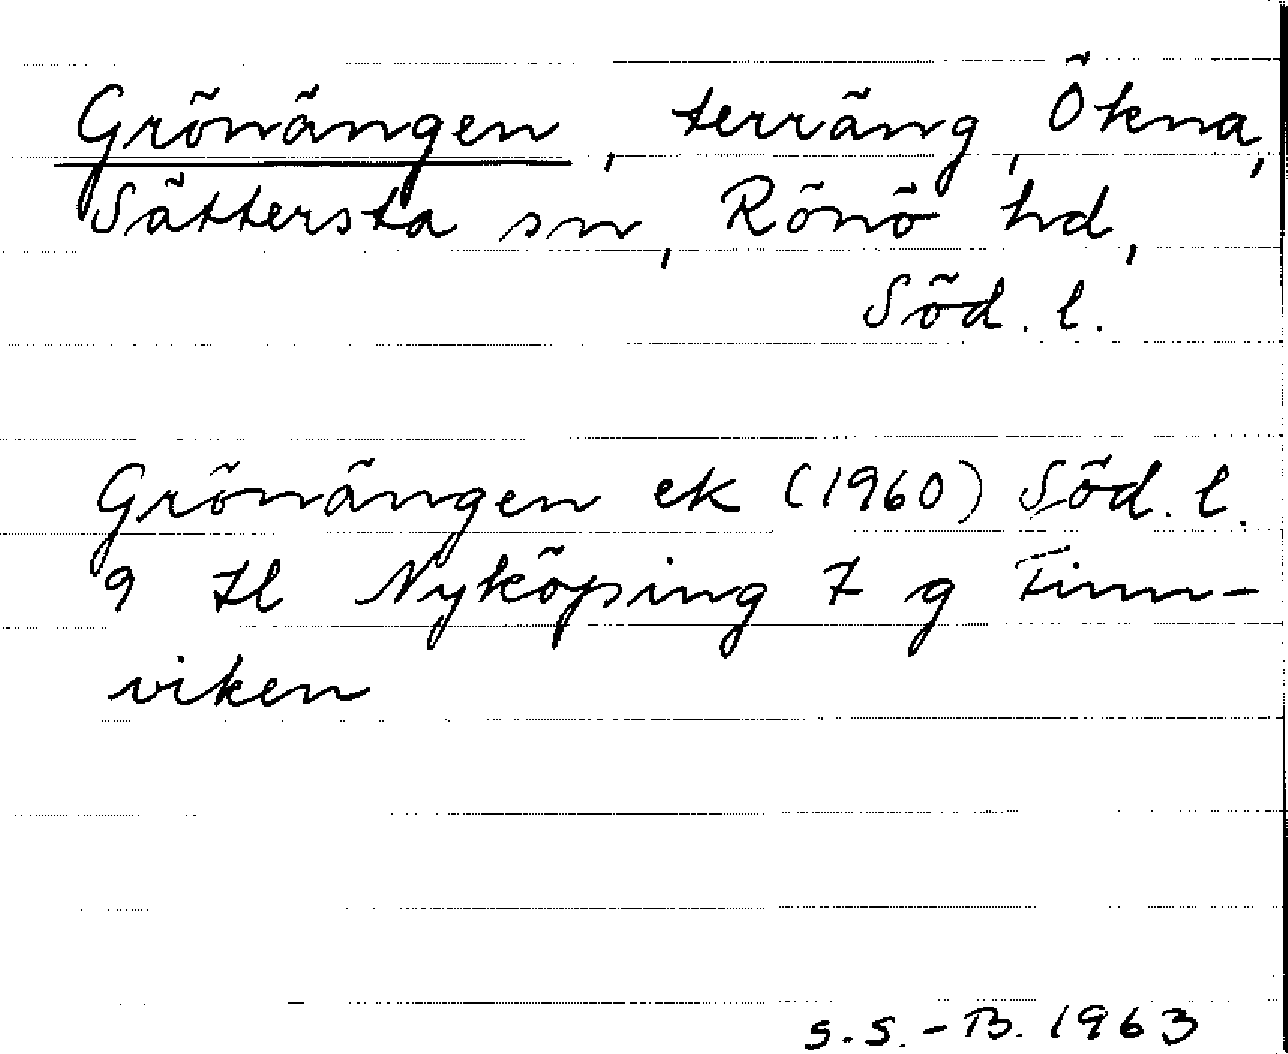 Grönängen, terräng, Ökna,
Sättersta sn, Rönö hd,
Söd. l.
Grönängen ek (1960) Söd. l.
9 Hl Nyköping 7 g Finn-
viken
S.S.-B. 1963